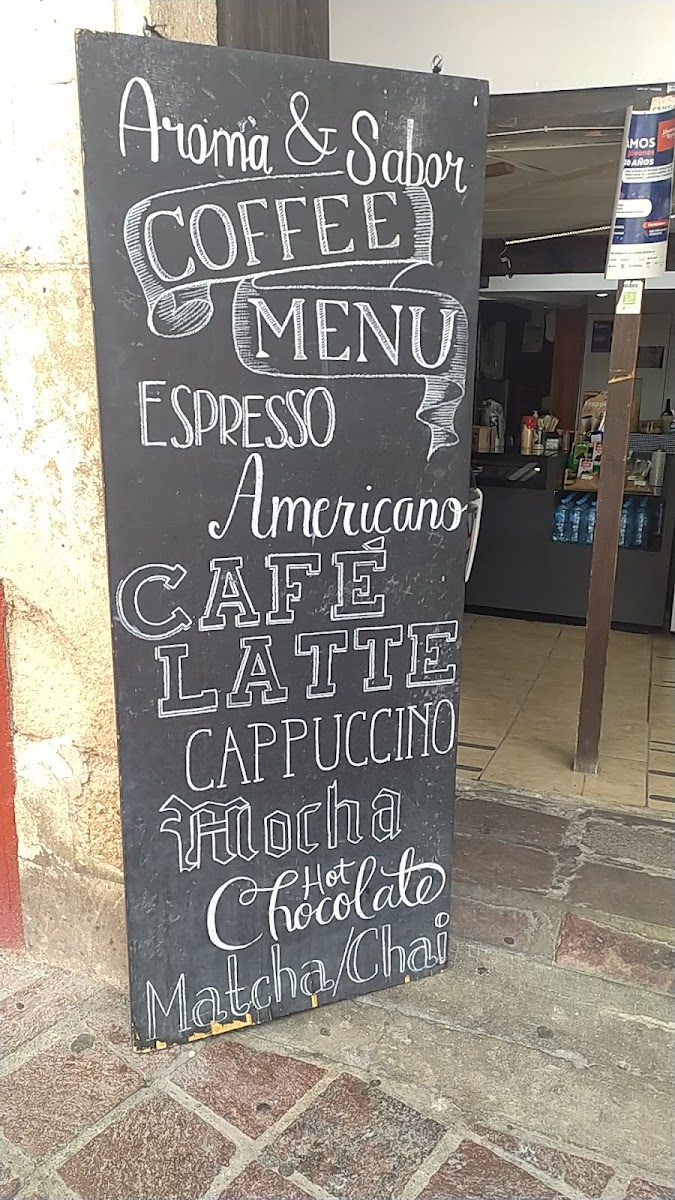 Aroma & Sabor
COFFEE
MENU
ESPRESSO
Americano
CAFÉ
LATTE
CAPPUCCINO
Mocha
Hot
Chocolate
Matcha/Chai
AMOS
70 AÑOS